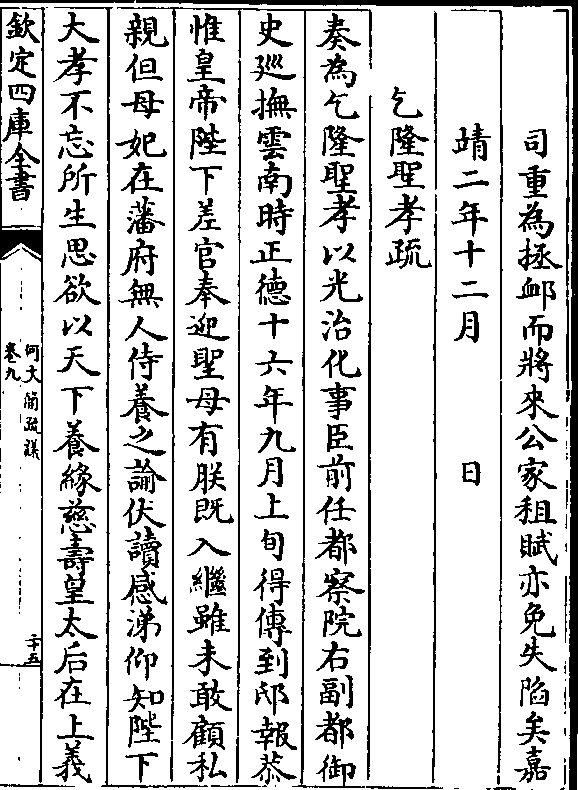 司重為拯卹而將來公家租賦亦免失陷矣嘉
靖二年十二月　日
乞隆聖孝疏
奏為乞隆聖孝以光治化事臣前任都察院右副都御
史廵撫雲南時正德十六年九月上旬得傳到邸報恭
惟皇帝陛下差官奉迎聖母有朕既入繼雖未敢顧私
親但母妃在藩府無人侍養之諭伏讀感涕仰知陛下
大孝不忘所生思欲以天下養緣慈壽皇太后在上義
欽定四庫全書
何文簡疏議
卷九
二十五